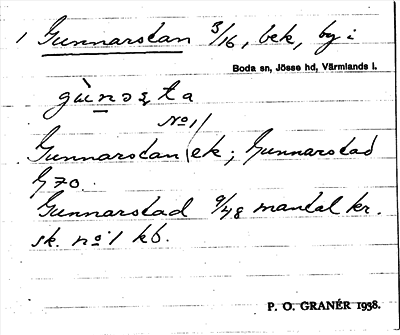 1 Gunnarstan 3/16, bek, by i
Boda sn, Jösse hd, Värmlands l.
gùnəʂta
No 1/
Gunnarstan (ek; Gunnarstad
G 70.
Gunnarstad 9/48 mantal kr.
sk. no: 1 kb.
P. O. GRANÉR 1938.